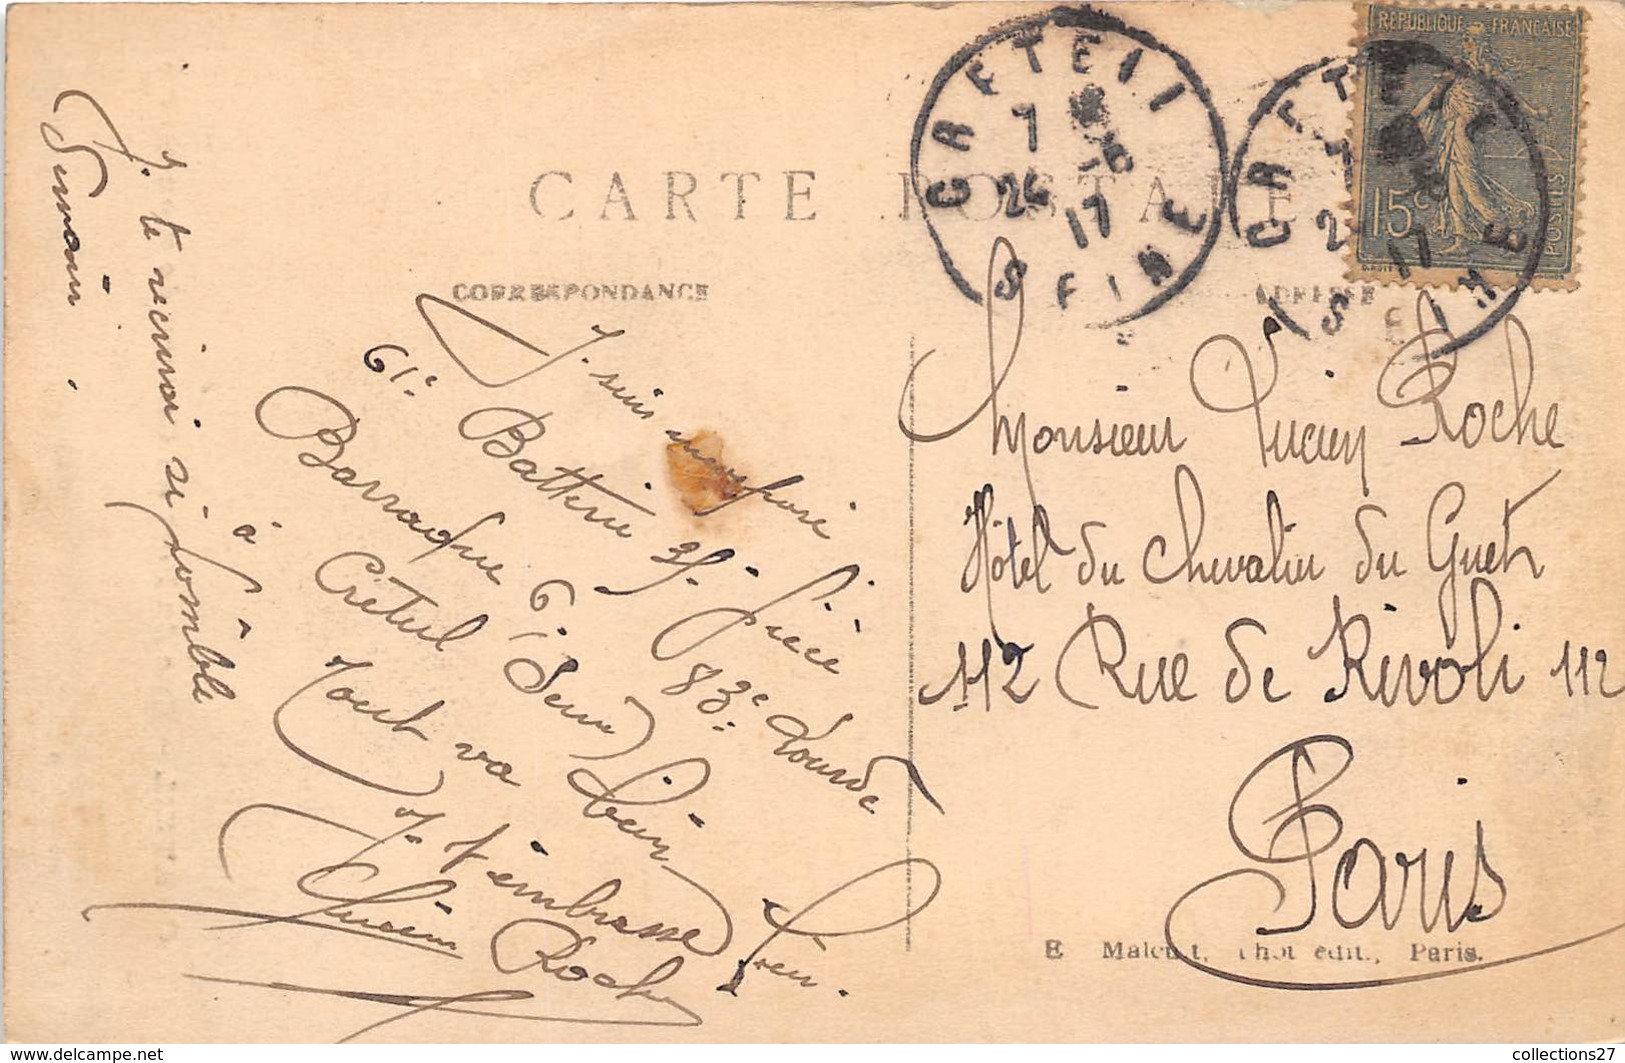 CARTE POSTALE
CORRESPONDANCE
ADRESSE
RÉPUBLIQUE FRANÇAISE
15c
POSTES
CRETEIL
7
26 -6
17
SEINE
CRETEIL
17
SEINE
J. suis
61e. Batterie 2/. Pièce
83e. Lourde
Barraque 6.
Créteil (Seine)
Tout va bien
J. t'embrasse bien.
Roche
J. te reverrai si possible
à
Demain.
Monsieur Lucien Roche
Hôtel du Chevalier du Guet
112 Rue de Rivoli 112
Paris
E Malcuit, Phot édit., Paris.
www.delcampe.net
collections27